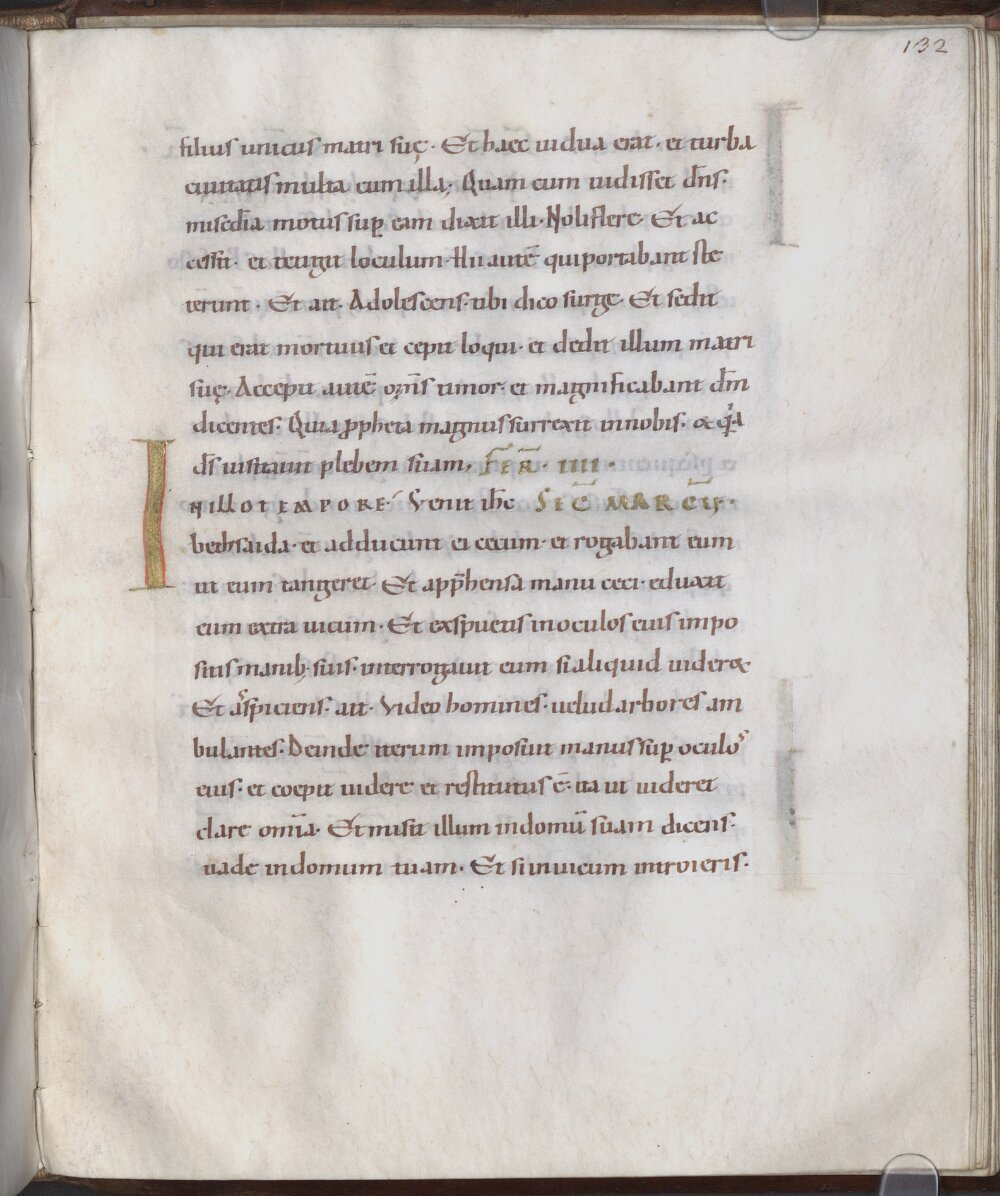 132
filius unicus matri suę. Et haec uidua erat. et turba
ciuitatis multa cum illa; Quam cum uidisset dñs.
misedia motus sup eam dixit illi. Noli flere. Et ac
cessit. et tetigit loculum. Hi autē qui portabant ste
terunt. Et ait. Adolescens. tibi dico surge. Et sedit
qui erat mortuus et cepit loqui. et dedit illum matri
suę. Accepit autē om̄s timor. et magnificabant dm̄
dicentes. Quia ppheta magnus surrexit in nobis. & qa
ds̄ uisitauit plebem suam. FER. IIII.
N ILLO TEMPORE. Venit ihc SEC MARCV.
bethsaida. et adducunt ei cecum. et rogabant eum
ut eum tangeret. Et apphensa manu ceci. eduxit
eum extra uicum. Et exspuens in oculos eius impo
sitis manib; suis. interrogauit eum si aliquid uider&
Et aspiciens. ait. Video homines. uelud arbores am
bulantes. Deinde iterum imposuit manus sup oculos
eius. et coepit uidere et restitutus ē. ita ut uideret
clare omīa. Et misit illum in domū suam dicens.
uade in domum tuam. Et si in uicum introieris.